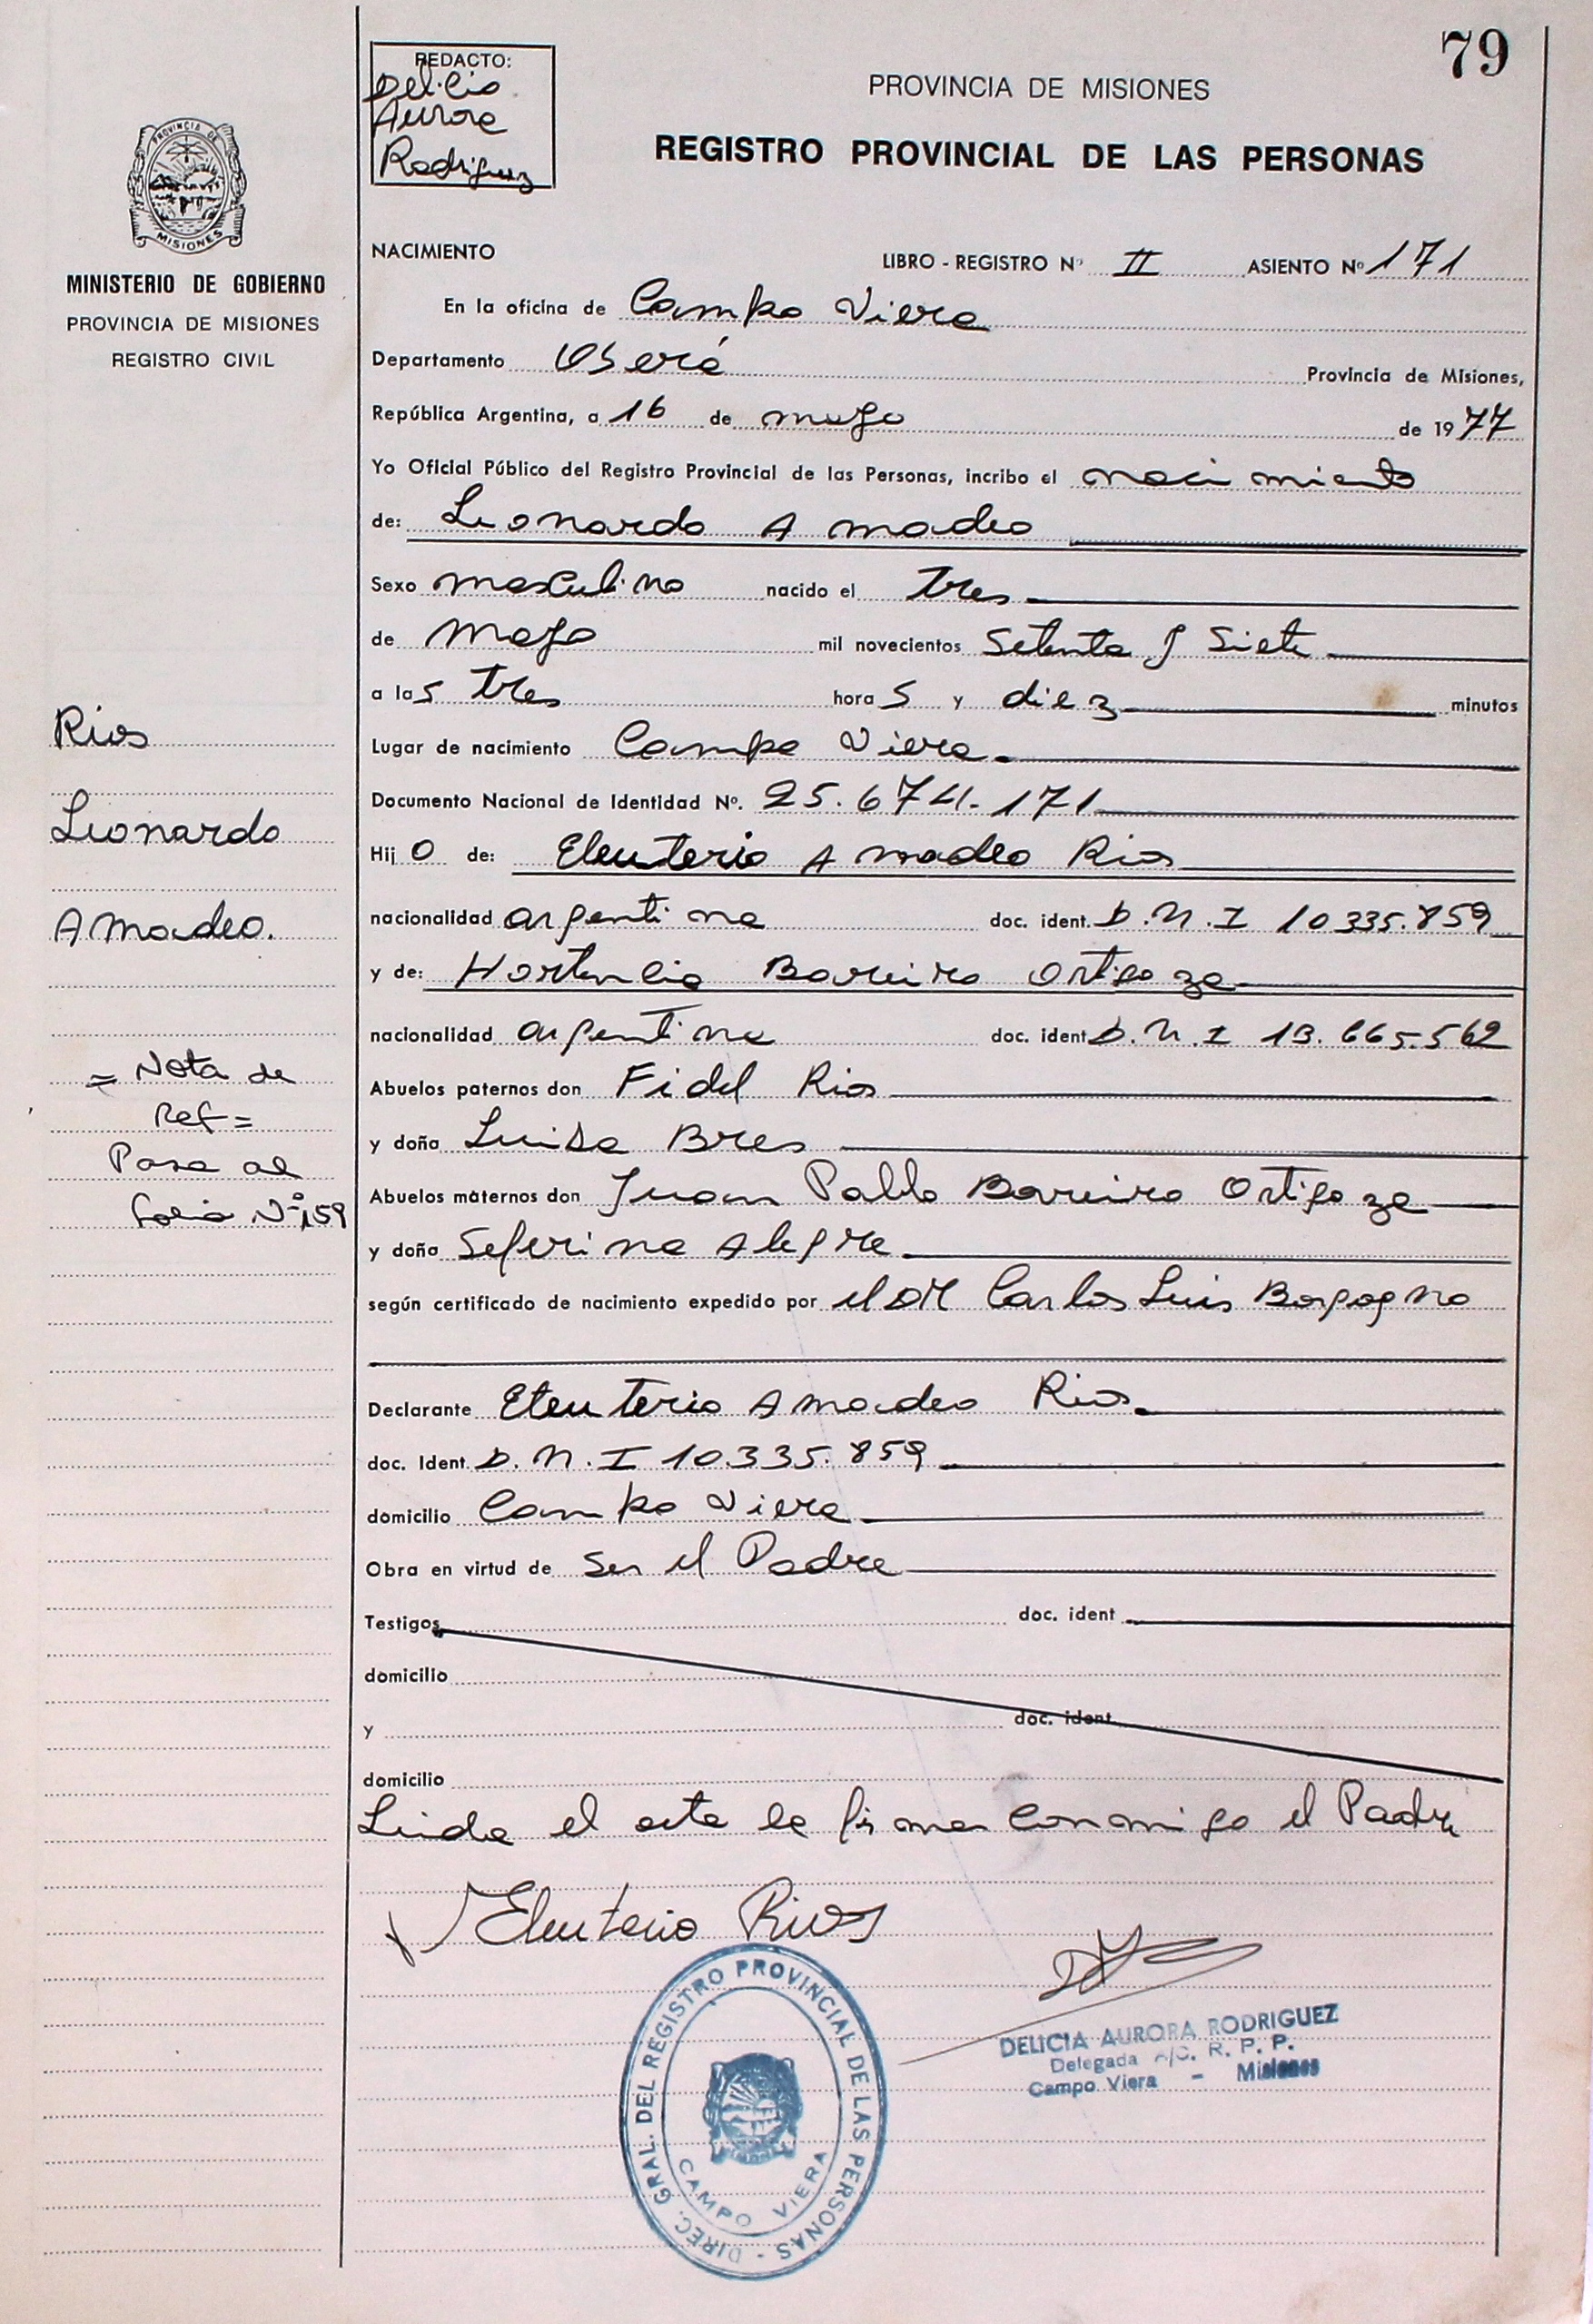 79
REDACTO:
Delicia
Aurora
Rodriguez
PROVINCIA DE MISIONES
REGISTRO PROVINCIAL DE LAS PERSONAS
PROVINCIA DE
MISIONES
MINISTERIO DE GOBIERNO
PROVINCIA DE MISIONES
REGISTRO CIVIL
NACIMIENTO LIBRO - REGISTRO Nº II ASIENTO Nº 171
En la oficina de Campo Viera
Departamento Oberá Provincia de Misiones,
República Argentina, a 16 de mayo de 1977
Yo Oficial Público del Registro Provincial de las Personas, incribo el nacimiento
de: Leonardo Amadeo
Sexo masculino nacido el tres
de mayo mil novecientos Setenta y Siete
a las tres horas y diez minutos
Lugar de nacimiento Campo Viera
Documento Nacional de Identidad Nº. 25.674.171
Hijo de: Eleuterio Amadeo Rios
nacionalidad argentina doc. ident. D.N.I 10335.859
y de: Hortencia Barreiro Ortigoza
nacionalidad argentina doc. ident D.N.I 13.665.562
Abuelos paternos don Fidel Rios
y doña Luisa Bres
Abuelos maternos don Juan Pablo Barreiro Ortigoza
y doña Seferina Alegre
según certificado de nacimiento expedido por el DR Carlos Luis Borgogno
Declarante Eleuterio Amadeo Rios
doc. Ident. D.N.I 10.335.859
domicilio Campo Viera
Obra en virtud de Ser el Padre
Testigos doc. ident
domicilio
y doc. ident
domicilio
Leida el acta la firma conmigo el Padre
Eleuterio Rios
Rios
Leonardo
Amadeo.
= Nota de
Ref =
Pasa al
folio Nº 159
DIREC. GRAL. DEL REGISTRO PROVINCIAL DE LAS PERSONAS -
CAMPO VIERA
DELICIA AURORA RODRIGUEZ
Delegada A/C. R. P. P.
Campo Viera - Misiones